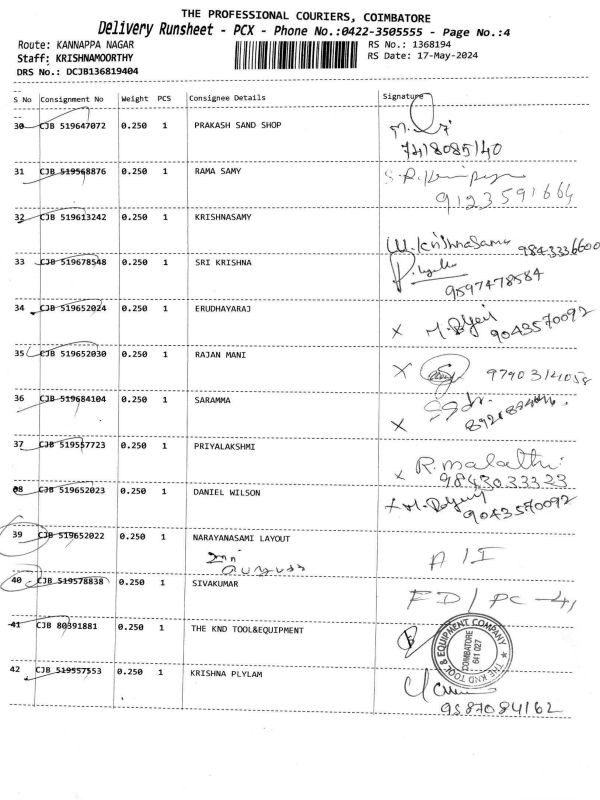 THE PROFESSIONAL COURIERS, COIMBATORE
Delivery Runsheet - PCX - Phone No.:0422-3505555 - Page No.:4
Route: KANNAPPA NAGAR RS No.: 1368194
Staff: KRISHNAMOORTHY RS Date: 17-May-2024
DRS No.: DCJB136819404
S No Consignment No Weight PCS Consignee Details Signature
30 CJB 519647072 0.250 1 PRAKASH SAND SHOP
7418085140
31 CJB 519568876 0.250 1 RAMA SAMY
9123591664
32 CJB 519613242 0.250 1 KRISHNASAMY
M.Krishnasamy 9843336600
33 CJB 519678548 0.250 1 SRI KRISHNA
9597478584
34 CJB 519652024 0.250 1 ERUDHAYARAJ
X 9043570092
35 CJB 519652030 0.250 1 RAJAN MANI
X 9790314058
36 CJB 519684104 0.250 1 SARAMMA
X
37 CJB 519557723 0.250 1 PRIYALAKSHMI
X R.malathi
9843033323
38 CJB 519652023 0.250 1 DANIEL WILSON
X 9043570092
39 CJB 519652022 0.250 1 NARAYANASAMI LAYOUT
A I I
40 CJB 519578838 0.250 1 SIVAKUMAR
FD/PC-41
41 CJB 80391881 0.250 1 THE KND TOOL&EQUIPMENT
THE KND TOOL & EQUIPMENT COMPANY
COIMBATORE
641 027
42 CJB 519557553 0.250 1 KRISHNA PLYLAM
9587084162